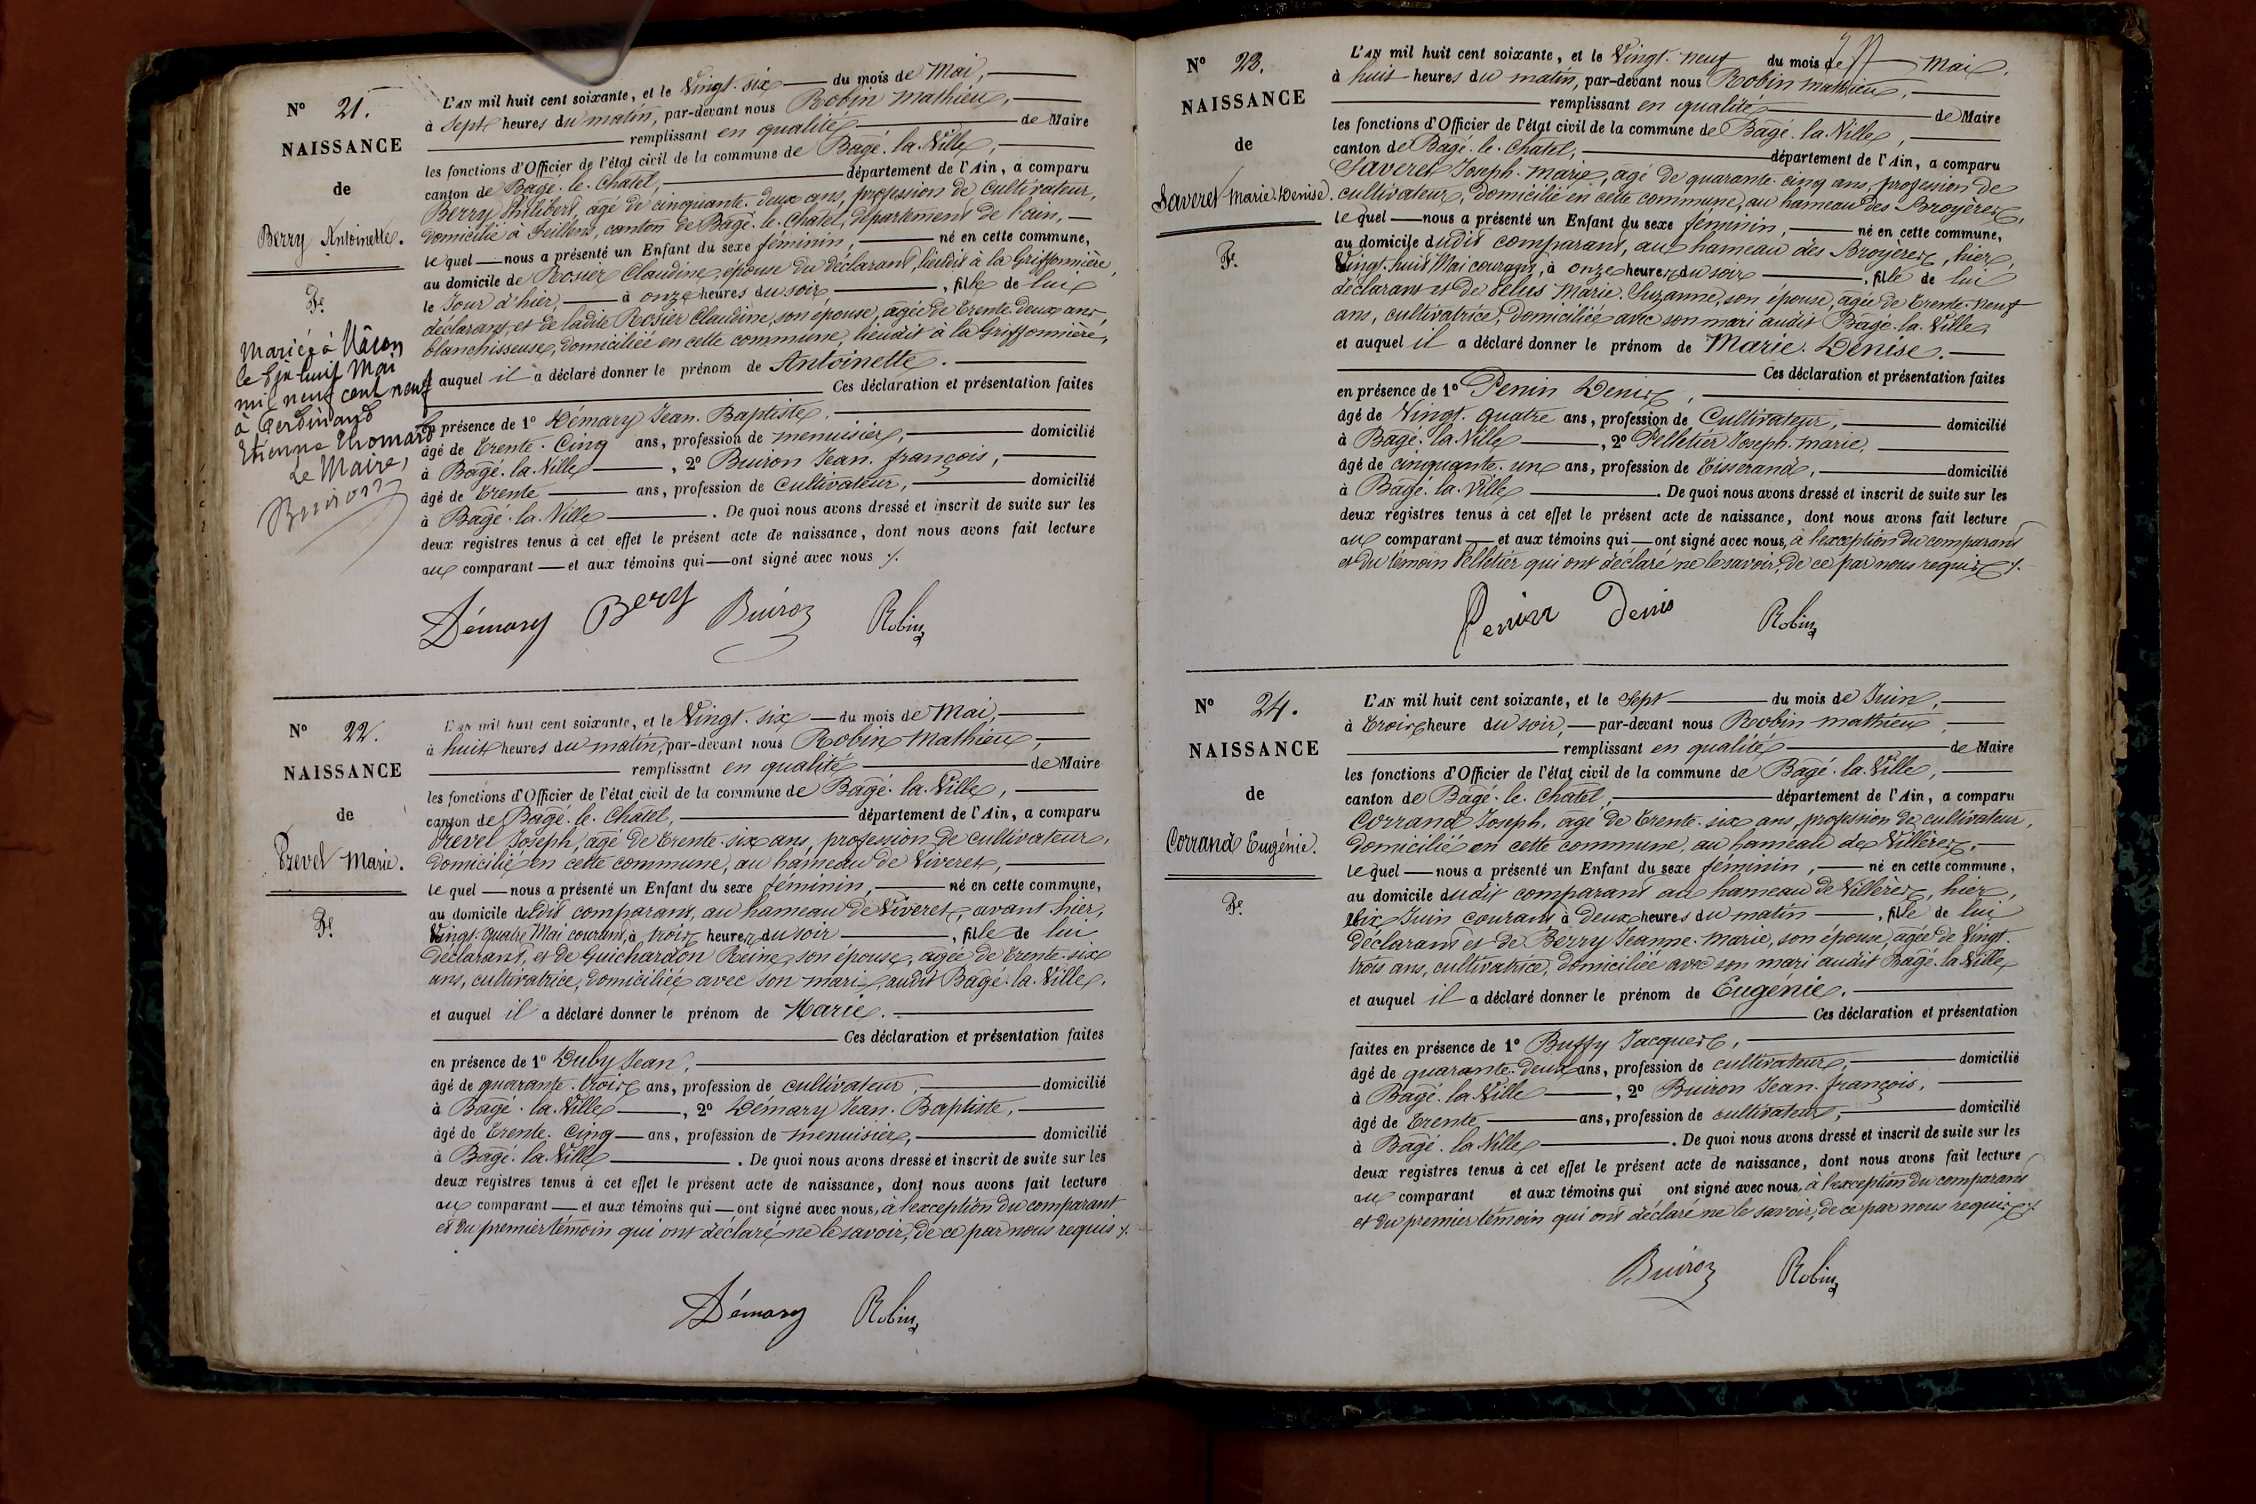 N° 21.
NAISSANCE
de
Berry Antoinette.
Fe.
Mariée à Mâcon
le dix huit Mai
mil neuf cent neuf
à Ferdinand
Etienne Thomard
Le Maire,
Buiron
L'AN mil huit cent soixante, et le Vingt-six du mois de Mai,
à Sept heures du matin, par-devant nous Robin Mathieu,
remplissant en qualité de Maire
les fonctions d'Officier de l'état civil de la commune de Bagé-la-Ville,
canton de Bagé-le-Chatel, département de l'Ain, a comparu
Berry Philibert, agé de cinquante-deux ans, profession de Cultivateur,
domicilié à Feillens, canton de Bagé-le-Chatel, département de l'ain,
lequel nous a présenté un Enfant du sexe féminin, né en cette commune,
au domicile de Rosier Claudine, épouse du déclarant, lieudit à la Griffonnière,
le Jour d'hier, à onze heures du soir, fille de lui
déclarant, et de ladite Rosier Claudine, son épouse, agée de Trente-deux ans,
blanchisseuse, domiciliée en cette commune, lieudit à la Griffonnière,
et auquel il a déclaré donner le prénom de Antoinette.
Ces déclaration et présentation faites
en présence de 1° Démary Jean-Baptiste,
âgé de Trente-Cinq ans, profession de menuisier, domicilié
à Bagé-la-Ville, 2° Buiron Jean-françois,
âgé de Trente ans, profession de Cultivateur, domicilié
à Bagé-la-Ville. De quoi nous avons dressé et inscrit de suite sur les
deux registres tenus à cet effet le présent acte de naissance, dont nous avons fait lecture
au comparant et aux témoins qui ont signé avec nous ./.
Démary Bery Buiron Robin
N° 22.
NAISSANCE
de
Prevel Marie.
Fe.
L'AN mil huit cent soixante, et le Vingt-six du mois de Mai,
à huit heures du matin, par-devant nous Robin Mathieu,
remplissant en qualité de Maire
les fonctions d'Officier de l'état civil de la commune de Bagé-la-Ville,
canton de Bagé-le-Chatel, département de l'Ain, a comparu
Prevel Joseph, agé de Trente-six ans, profession de cultivateur,
domicilié en cette commune, au hameau de Viveret,
lequel nous a présenté un Enfant du sexe féminin, né en cette commune,
au domicile dudit comparant, au hameau de Viveret, avant hier,
Vingt-quatre Mai courant, à trois heures du soir, fille de lui
déclarant, et de Guichardon Reine, son épouse, agée de Trente-six
ans, cultivatrice, domiciliée avec son mari, audit Bagé-la-Ville,
et auquel il a déclaré donner le prénom de Marie.
Ces déclaration et présentation faites
en présence de 1° Duby Jean,
âgé de quarante-trois ans, profession de cultivateur, domicilié
à Bagé-la-Ville, 2° Démary Jean-Baptiste,
âgé de Trente-Cinq ans, profession de menuisier, domicilié
à Bagé-la-Ville. De quoi nous avons dressé et inscrit de suite sur les
deux registres tenus à cet effet le présent acte de naissance, dont nous avons fait lecture
au comparant et aux témoins qui ont signé avec nous, à l'exception du comparant
et du premier témoin qui ont déclaré ne le savoir, de ce par nous requis ./.
Démary Robin
N° 23.
NAISSANCE
de
Saveret Marie-Denise.
Fe.
L'AN mil huit cent soixante, et le Vingt-neuf du mois de Mai,
à huit heures du matin, par-devant nous Robin Mathieu,
remplissant en qualité de Maire
les fonctions d'Officier de l'état civil de la commune de Bagé-la-Ville,
canton de Bagé-le-Chatel, département de l'Ain, a comparu
Saveret Joseph-marie, agé de quarante-cinq ans, profession de
cultivateur, domicilié en cette commune, au hameau des Broyères,
lequel nous a présenté un Enfant du sexe féminin, né en cette commune,
au domicile dudit comparant, au hameau des Broyères, hier,
Vingt-huit Mai courant, à onze heures du soir, fille de lui
déclarant et de Marie-Suzanne, son épouse, agée de Trente-neuf
ans, cultivatrice, domiciliée avec son mari audit Bagé-la-Ville,
et auquel il a déclaré donner le prénom de Marie-Denise.
Ces déclaration et présentation faites
en présence de 1° Penin Denis,
âgé de Vingt-quatre ans, profession de Cultivateur, domicilié
à Bagé-la-Ville, 2° Pelletier Joseph-marie,
âgé de cinquante-un ans, profession de Tisserand, domicilié
à Bagé-la-Ville. De quoi nous avons dressé et inscrit de suite sur les
deux registres tenus à cet effet le présent acte de naissance, dont nous avons fait lecture
au comparant et aux témoins qui ont signé avec nous, à l'exception du comparant
et du témoin Pelletier qui ont déclaré ne le savoir, de ce par nous requis ./.
Penin Denis Robin
N° 24.
NAISSANCE
de
Corrand Eugénie.
Fe.
L'AN mil huit cent soixante, et le Sept du mois de Juin,
à Trois heure du soir, par-devant nous Robin Mathieu,
remplissant en qualité de Maire
les fonctions d'Officier de l'état civil de la commune de Bagé-la-Ville,
canton de Bagé-le-Chatel, département de l'Ain, a comparu
Corrand Joseph, agé de Trente-six ans, profession de cultivateur,
domicilié en cette commune, au hameau de Villères,
lequel nous a présenté un Enfant du sexe féminin, né en cette commune,
au domicile dudit comparant au hameau de Villères, hier,
Six Juin courant à deux heures du matin, fille de lui
déclarant et de Berry Jeanne-marie, son épouse, agée de Vingt-
trois ans, cultivatrice, domiciliée avec son mari audit Bagé-la-Ville,
et auquel il a déclaré donner le prénom de Eugénie.
Ces déclaration et présentation
faites en présence de 1° Buffy Jacques,
âgé de quarante-deux ans, profession de cultivateur, domicilié
à Bagé-la-Ville, 2° Buiron Jean-françois,
âgé de Trente ans, profession de cultivateur, domicilié
à Bagé-la-Ville. De quoi nous avons dressé et inscrit de suite sur les
deux registres tenus à cet effet le présent acte de naissance, dont nous avons fait lecture
au comparant et aux témoins qui ont signé avec nous, à l'exception du comparant
et du premier témoin qui ont déclaré ne le savoir, de ce par nous requis ./.
Buiron Robin